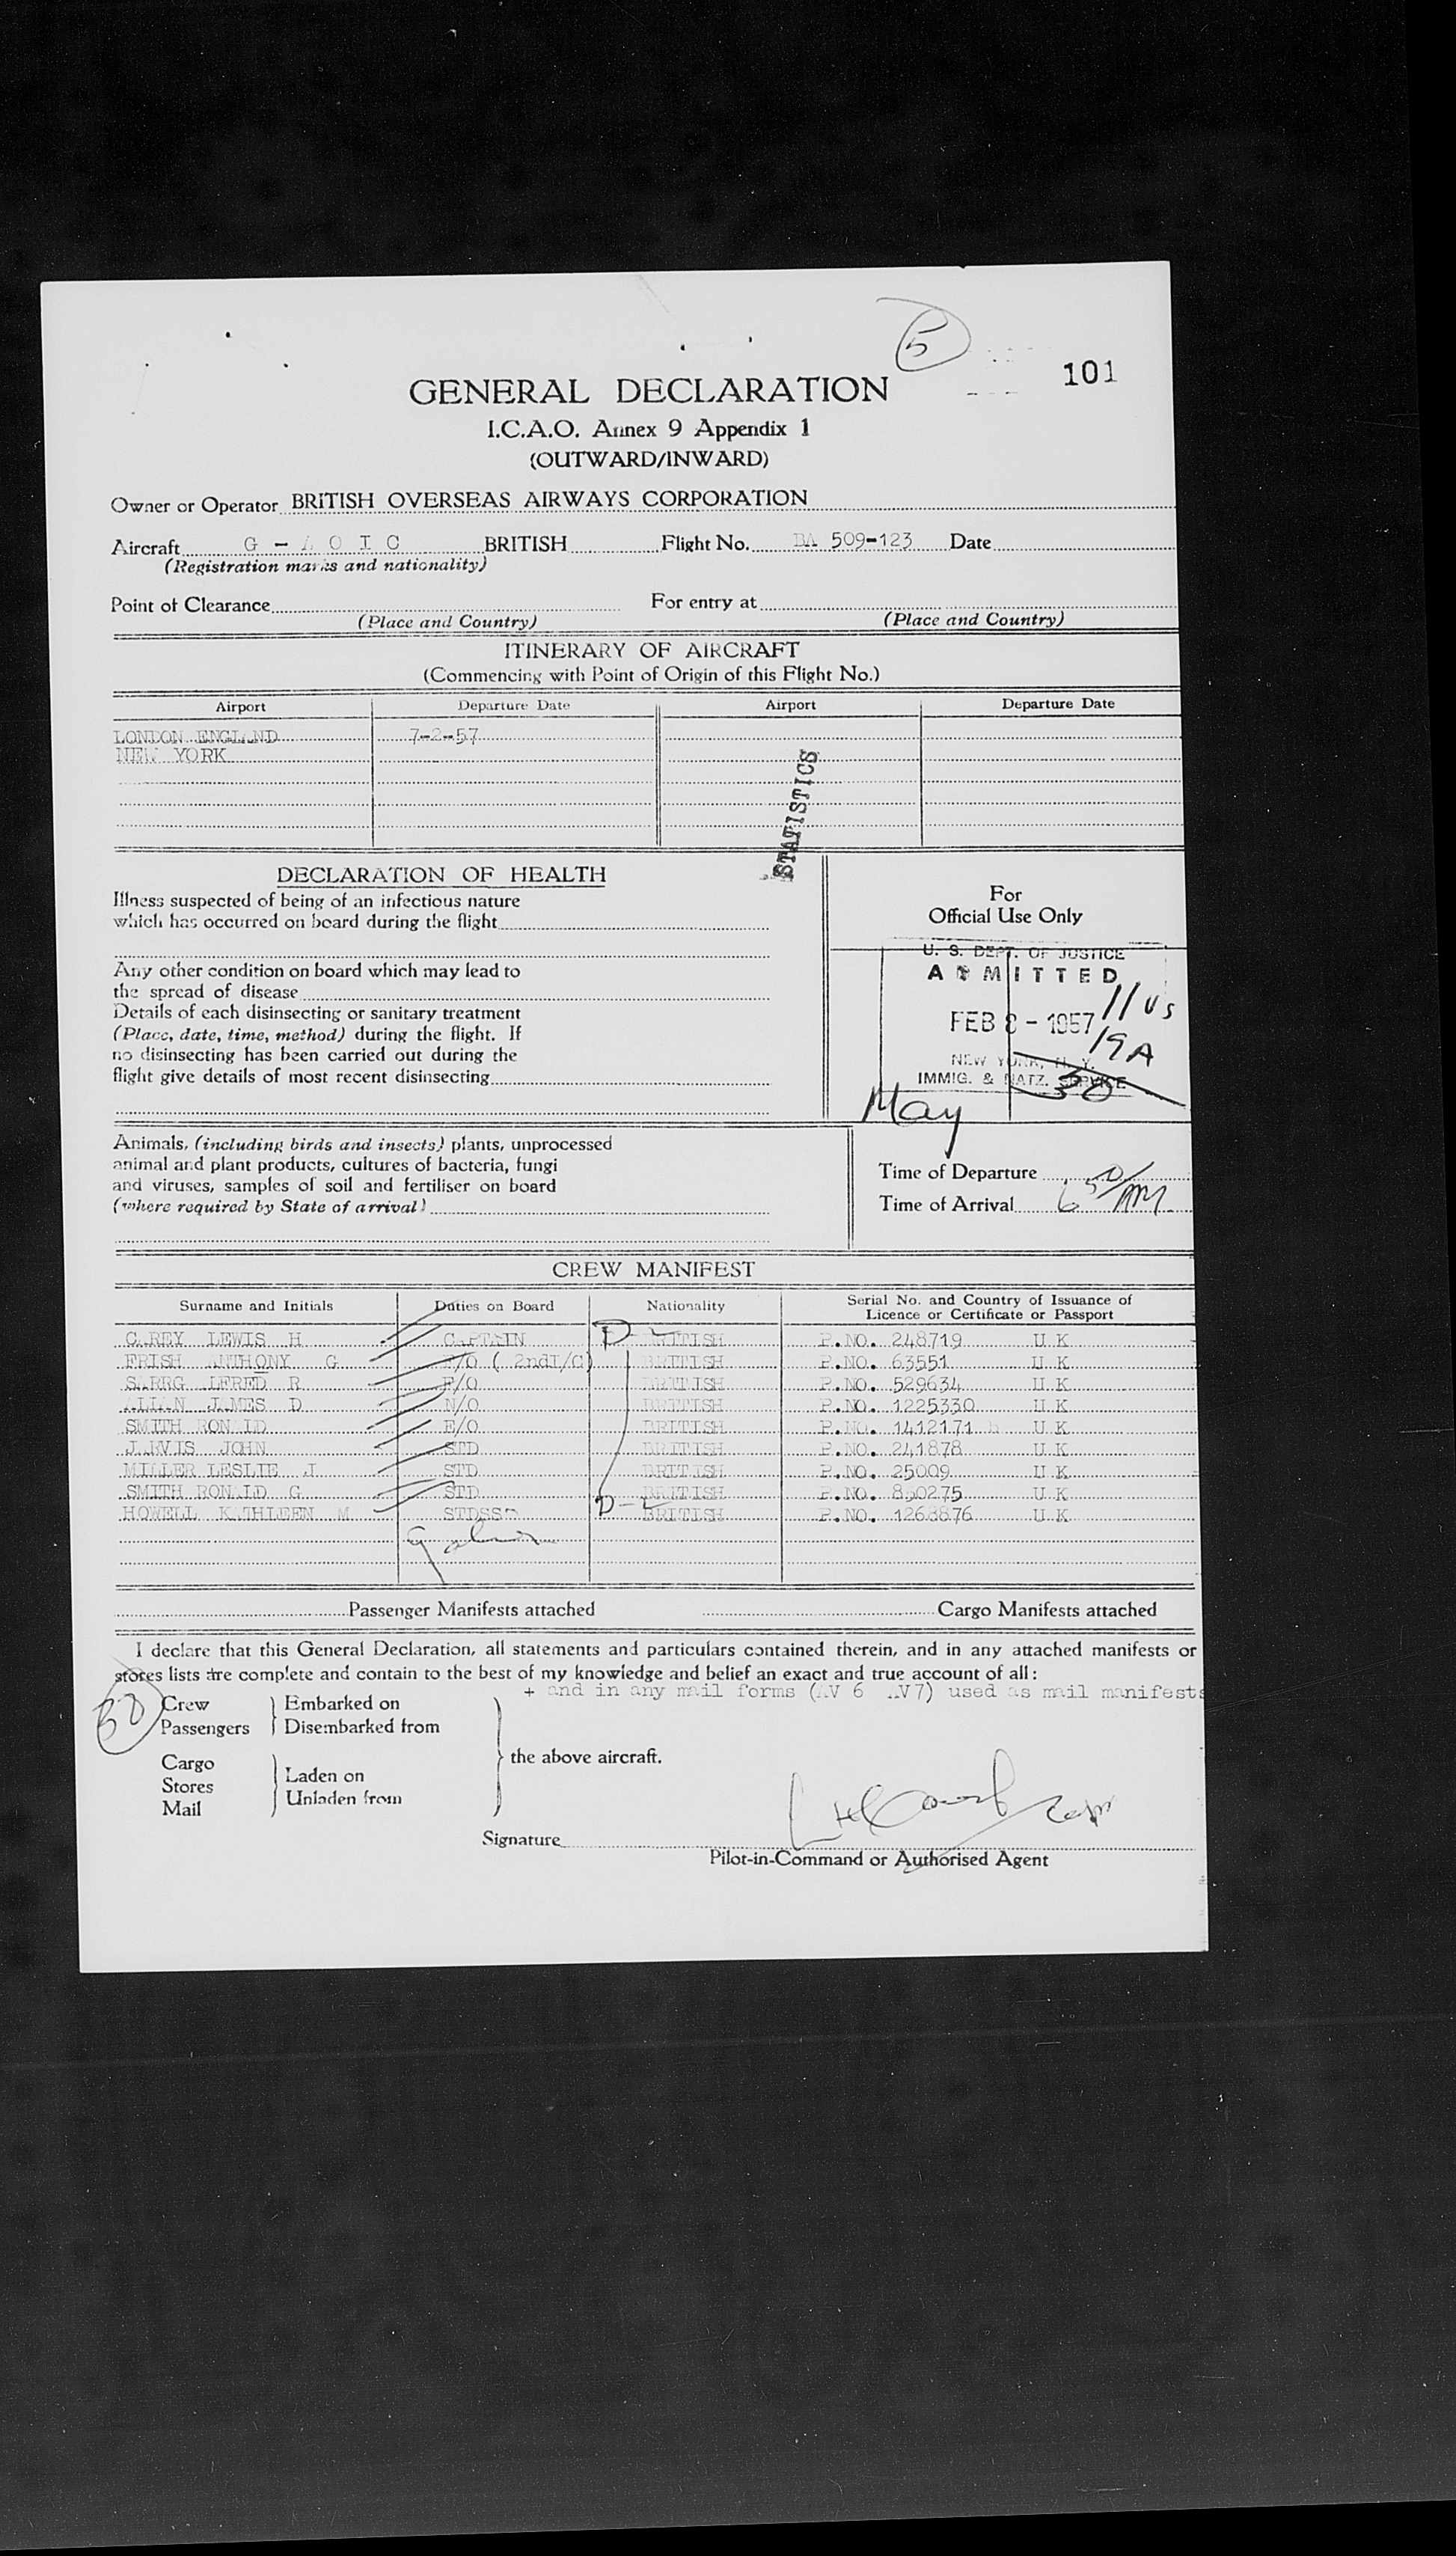 5
101
GENERAL DECLARATION
I.C.A.O. Annex 9 Appendix 1
(OUTWARD/INWARD)
Owner or Operator BRITISH OVERSEAS AIRWAYS CORPORATION
Aircraft G - A O I C BRITISH Flight No. BA 509-123 Date
(Registration marks and nationality)
Point of Clearance For entry at
(Place and Country) (Place and Country)
ITINERARY OF AIRCRAFT
(Commencing with Point of Origin of this Flight No.)
Airport Departure Date Airport Departure Date
LONDON ENGLAND 7-2-57
NEW YORK
STATISTICS
DECLARATION OF HEALTH
Illness suspected of being of an infectious nature
which has occurred on board during the flight
Any other condition on board which may lead to
the spread of disease
Details of each disinsecting or sanitary treatment
(Place, date, time, method) during the flight. If
no disinsecting has been carried out during the
flight give details of most recent disinsecting
For
Official Use Only
U. S. DEPT. OF JUSTICE
ADMITTED
11 US
FEB 8 - 1957
19A
NEW YORK, N. Y.
IMMIG. & NATZ. SERVICE
30
May
Animals, (including birds and insects) plants, unprocessed
animal and plant products, cultures of bacteria, fungi
and viruses, samples of soil and fertiliser on board
(where required by State of arrival)
Time of Departure
Time of Arrival 6 50 AM
CREW MANIFEST
Surname and Initials Duties on Board Nationality Serial No. and Country of Issuance of
Licence or Certificate or Passport
CAREY LEWIS H CAPTAIN D-L BRITISH P.NO. 248719 U K
FRISH ANTHONY G F/O ( 2ndI/C) BRITISH P.NO. 63551 U K
SARRG ALFRED R F/O BRITISH P.NO. 529634 U K
ALLAN JAMES D N/O BRITISH P.NO. 1225330 U K
SMITH RONALD E/O BRITISH P.NO. 1412171 U K
JARVIS JOHN STD BRITISH P.NO. 241878 U K
MILLER LESLIE J STD BRITISH P.NO. 25009 U K
SMITH RONALD G STD BRITISH P.NO. 850275 U K
HOWELL KATHLEEN M STDSS D-L BRITISH P.NO. 1268876 U K
Passenger Manifests attached Cargo Manifests attached
I declare that this General Declaration, all statements and particulars contained therein, and in any attached manifests or
stores lists are complete and contain to the best of my knowledge and belief an exact and true account of all:
+ and in any mail forms (AV 6 AV7) used as mail manifests
30
Crew Embarked on
Passengers Disembarked from
the above aircraft.
Cargo
Stores Laden on
Mail Unladen from
Signature
Pilot-in-Command or Authorised Agent